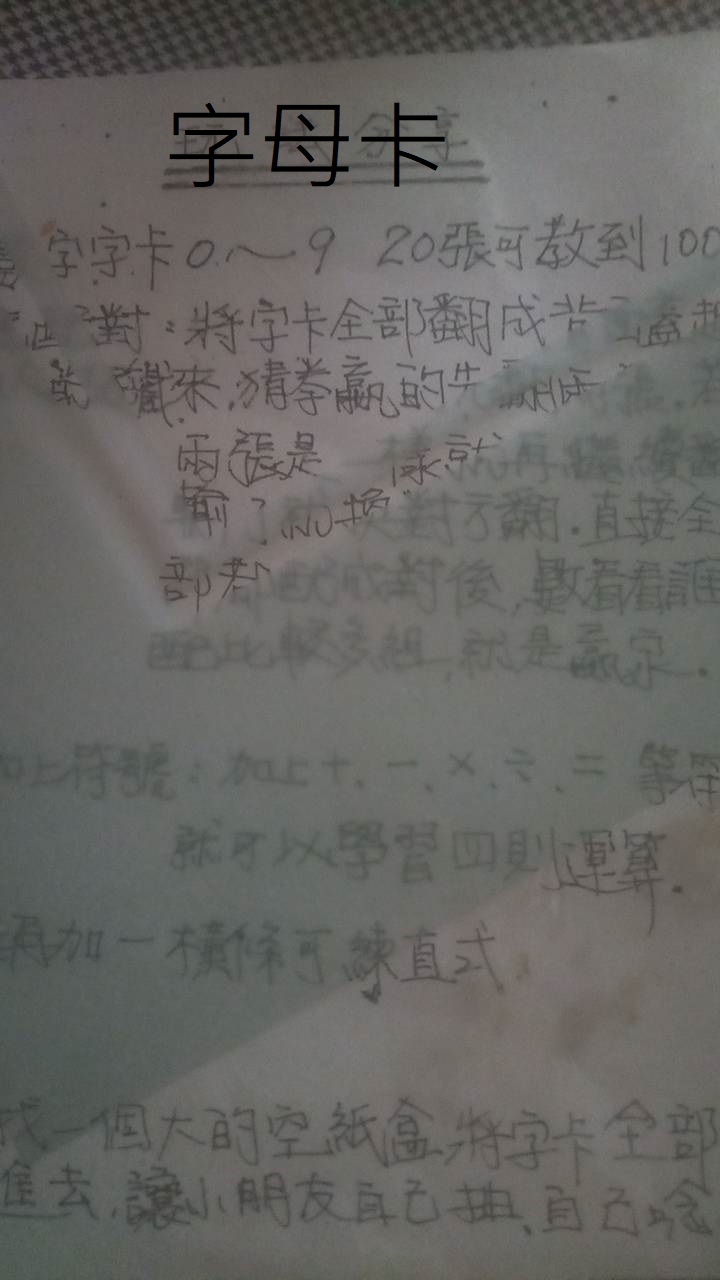 字母卡
字字卡0~9 20張可教到100
對：將字卡全部翻成背面蓋起
來，猜拳贏的先翻兩張，若
兩張是一樣就再繼續翻
輸了就換對方翻．直接全
部都配成對後，數看看誰
配比較多組，就是贏家．
加上符號：加上+、-、×、÷、= 等符
就可以學習四則運算．
再加一橫條可練直式
找一個大的空紙盒，將字卡全部
進去，讓小朋友自己抽、自己唸